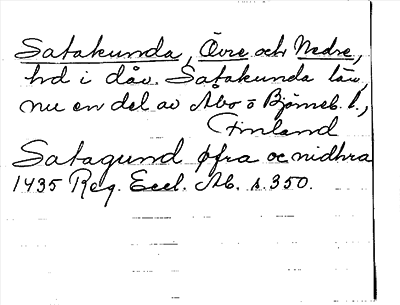 Satakunda, Övre och Nedre,
hd i dåv. Satakunda län,
nu en del av Åbo o Björneb. l.,
Finland
Satagund øfra oc nidhra
1435 Reg. Eccl. Ab. s. 350.